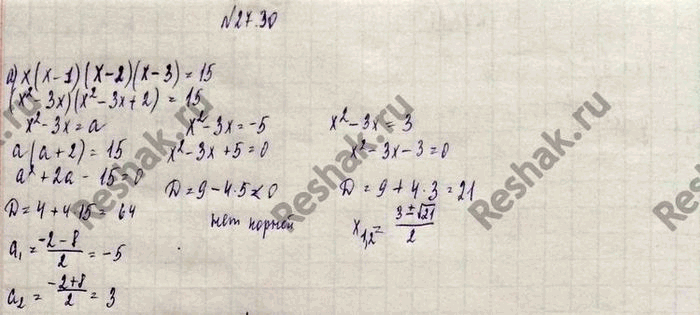 №27.30
а) x(x-1)(x-2)(x-3) = 15
(x²-3x)(x²-3x+2) = 15
x²-3x = a
a(a+2) = 15
a²+2a-15=0
D=4+4·15=64
a₁ = (-2-8)/2 = -5
a₂ = (-2+8)/2 = 3
x²-3x=-5
x²-3x+5=0
D=9-4·5<0
нет корней
x²-3x=3
x²-3x-3=0
D=9+4·3=21
x₁,₂= (3±√21)/2
Reshak.ru
Reshak.ru
Reshak.ru
Reshak.ru